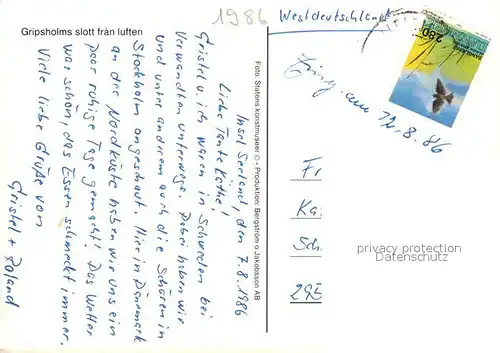 Gripsholms slott från luften
1986
Westdeutschland
280
am 12.8.86
Insel Seeland, den 7.8.1986
Liebe Tante Käthe!
Gristel u. ich waren in Schweden bei
Verwandten unterwegs. Dabei haben wir
und unter anderem auch die Schären in
Stockholm angeschaut. Hier in Dänemark
an der Nordküste haben wir uns ein
paar ruhige Tage gemacht! Das Wetter
war schön, das Essen schmeckt immer.
Viele liebe Grüße von
Gristel + Roland
Foto: Statens konstmuseer © • Produktion: Bergström o Jakobsson AB
Fr
Ka
Sch
295
privacy protection
Datenschutz